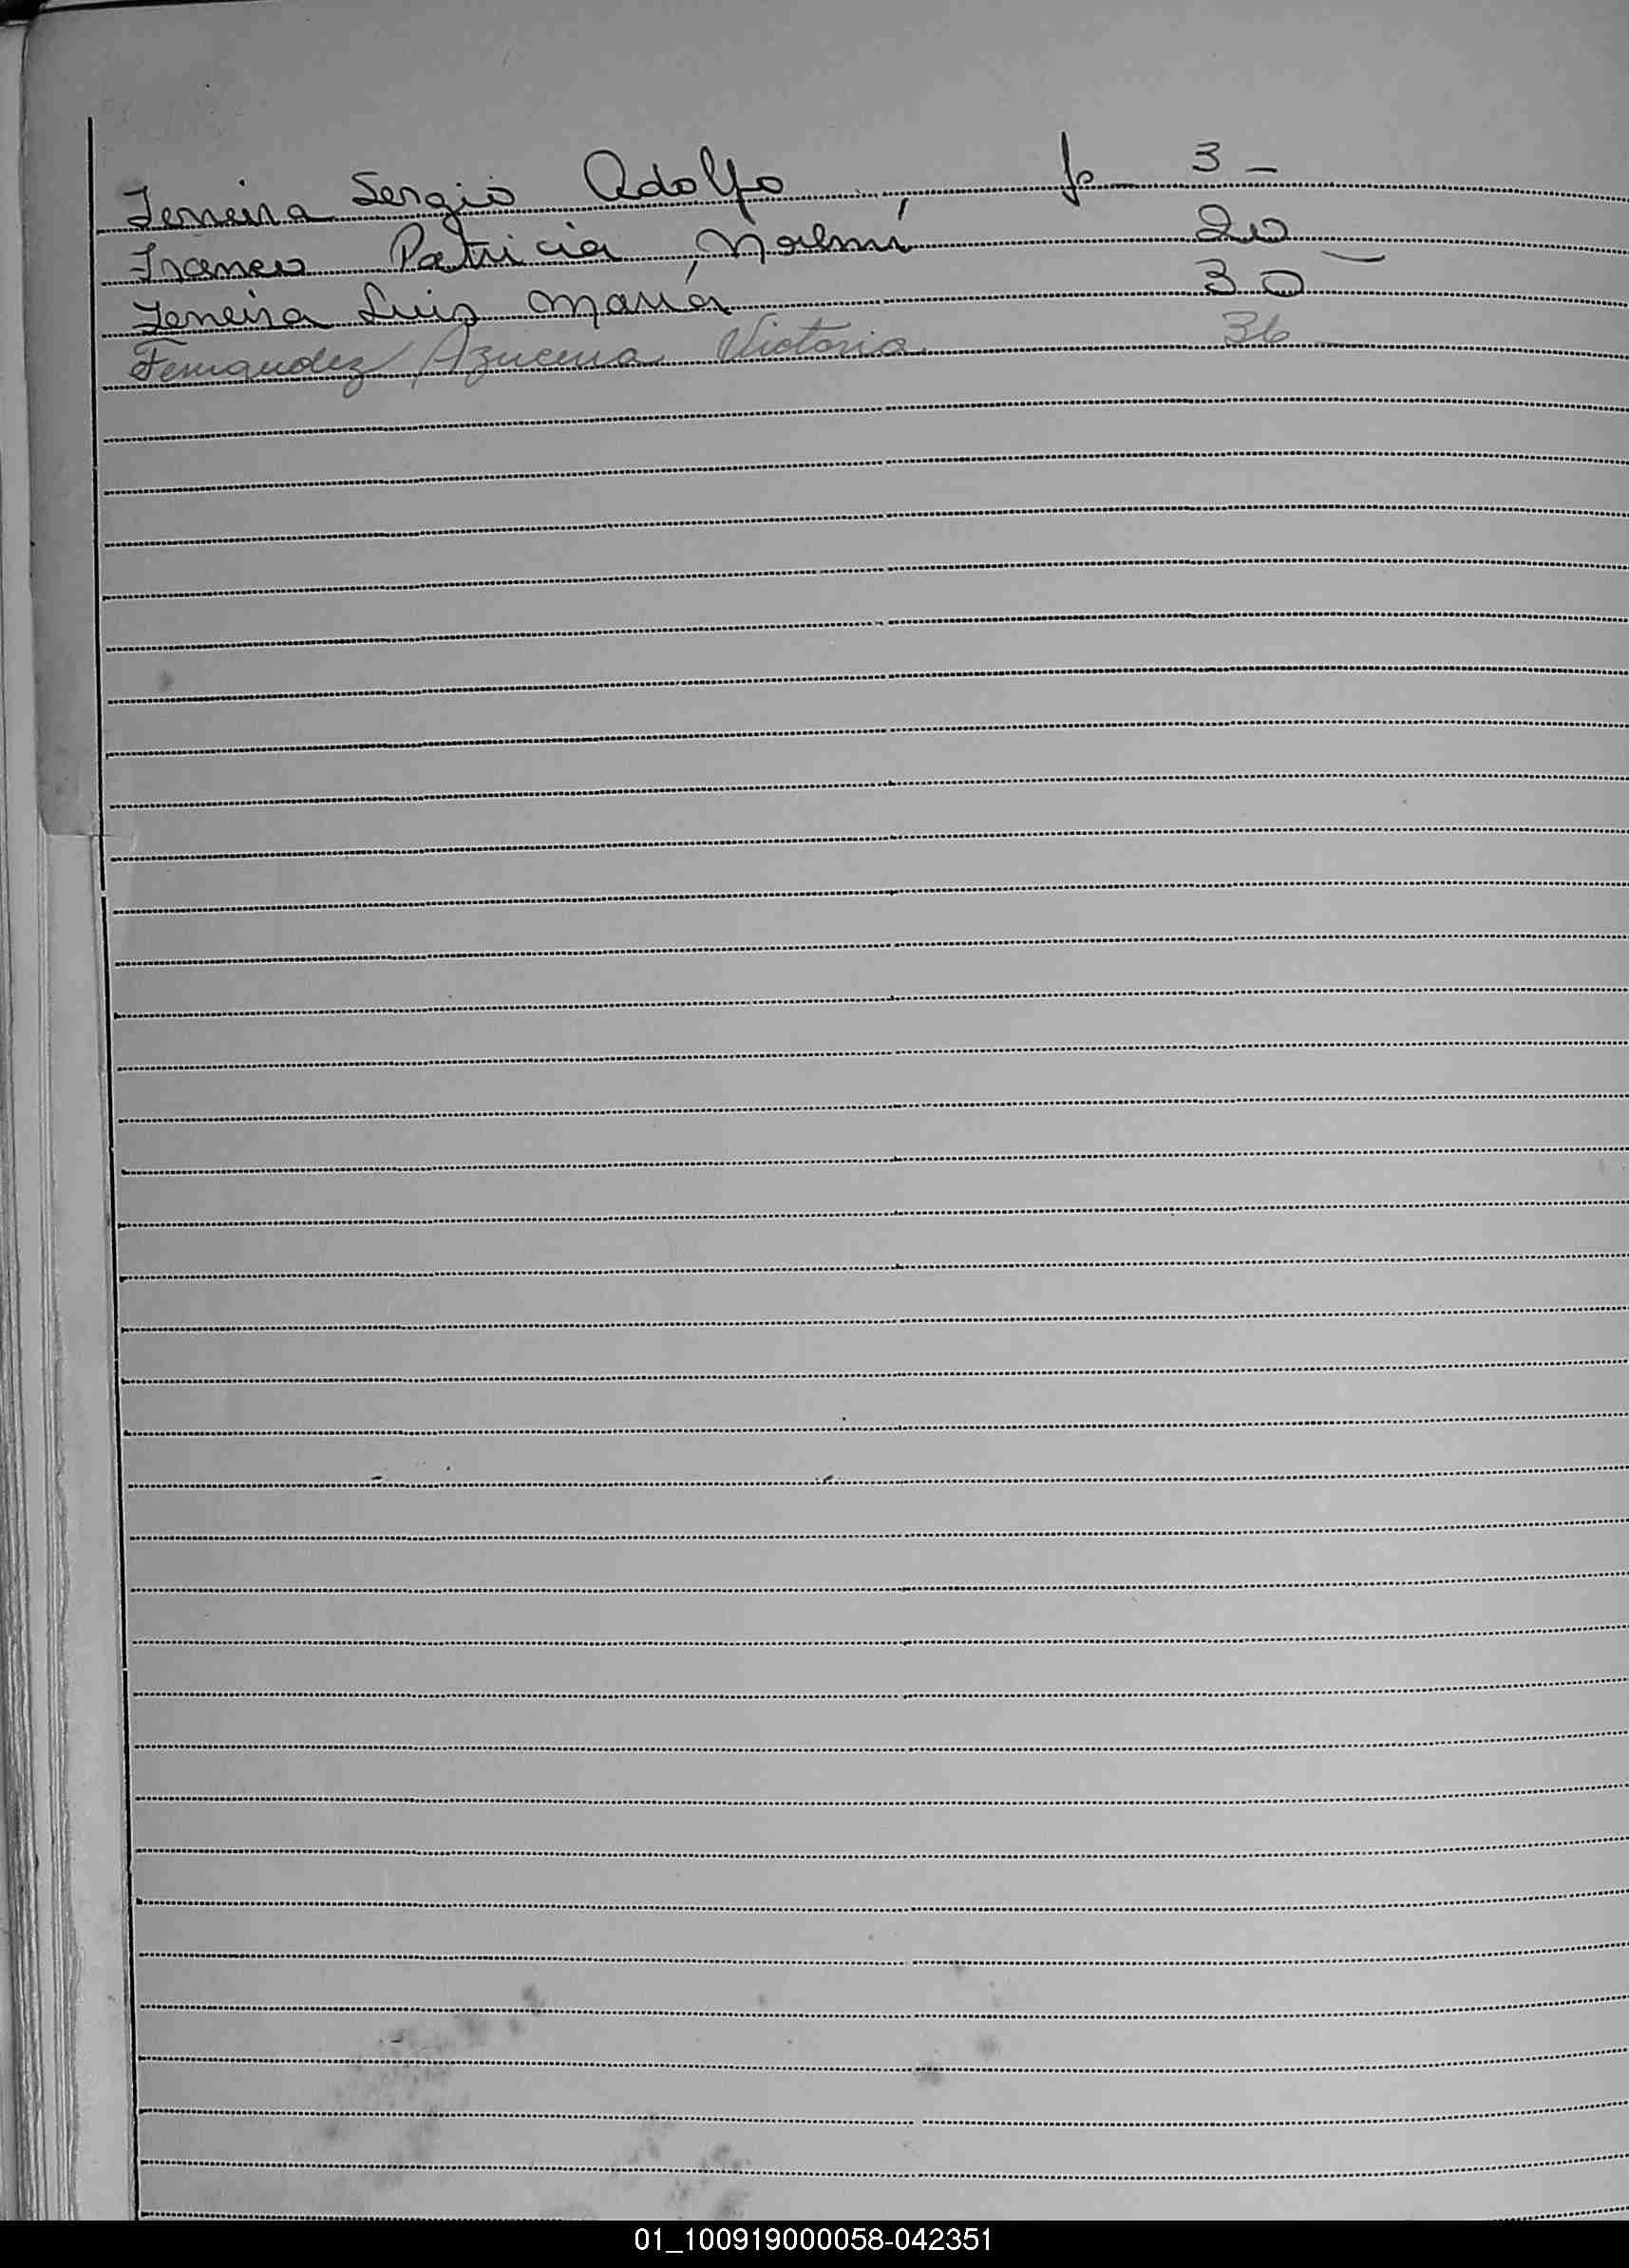 Ferreira Sergio Adolfo fo 3 -
Franco Patricia Noemí 20 -
Ferreira Luis María 30
Fernandez Azucena Victoria 36 -
01_100919000058-042351